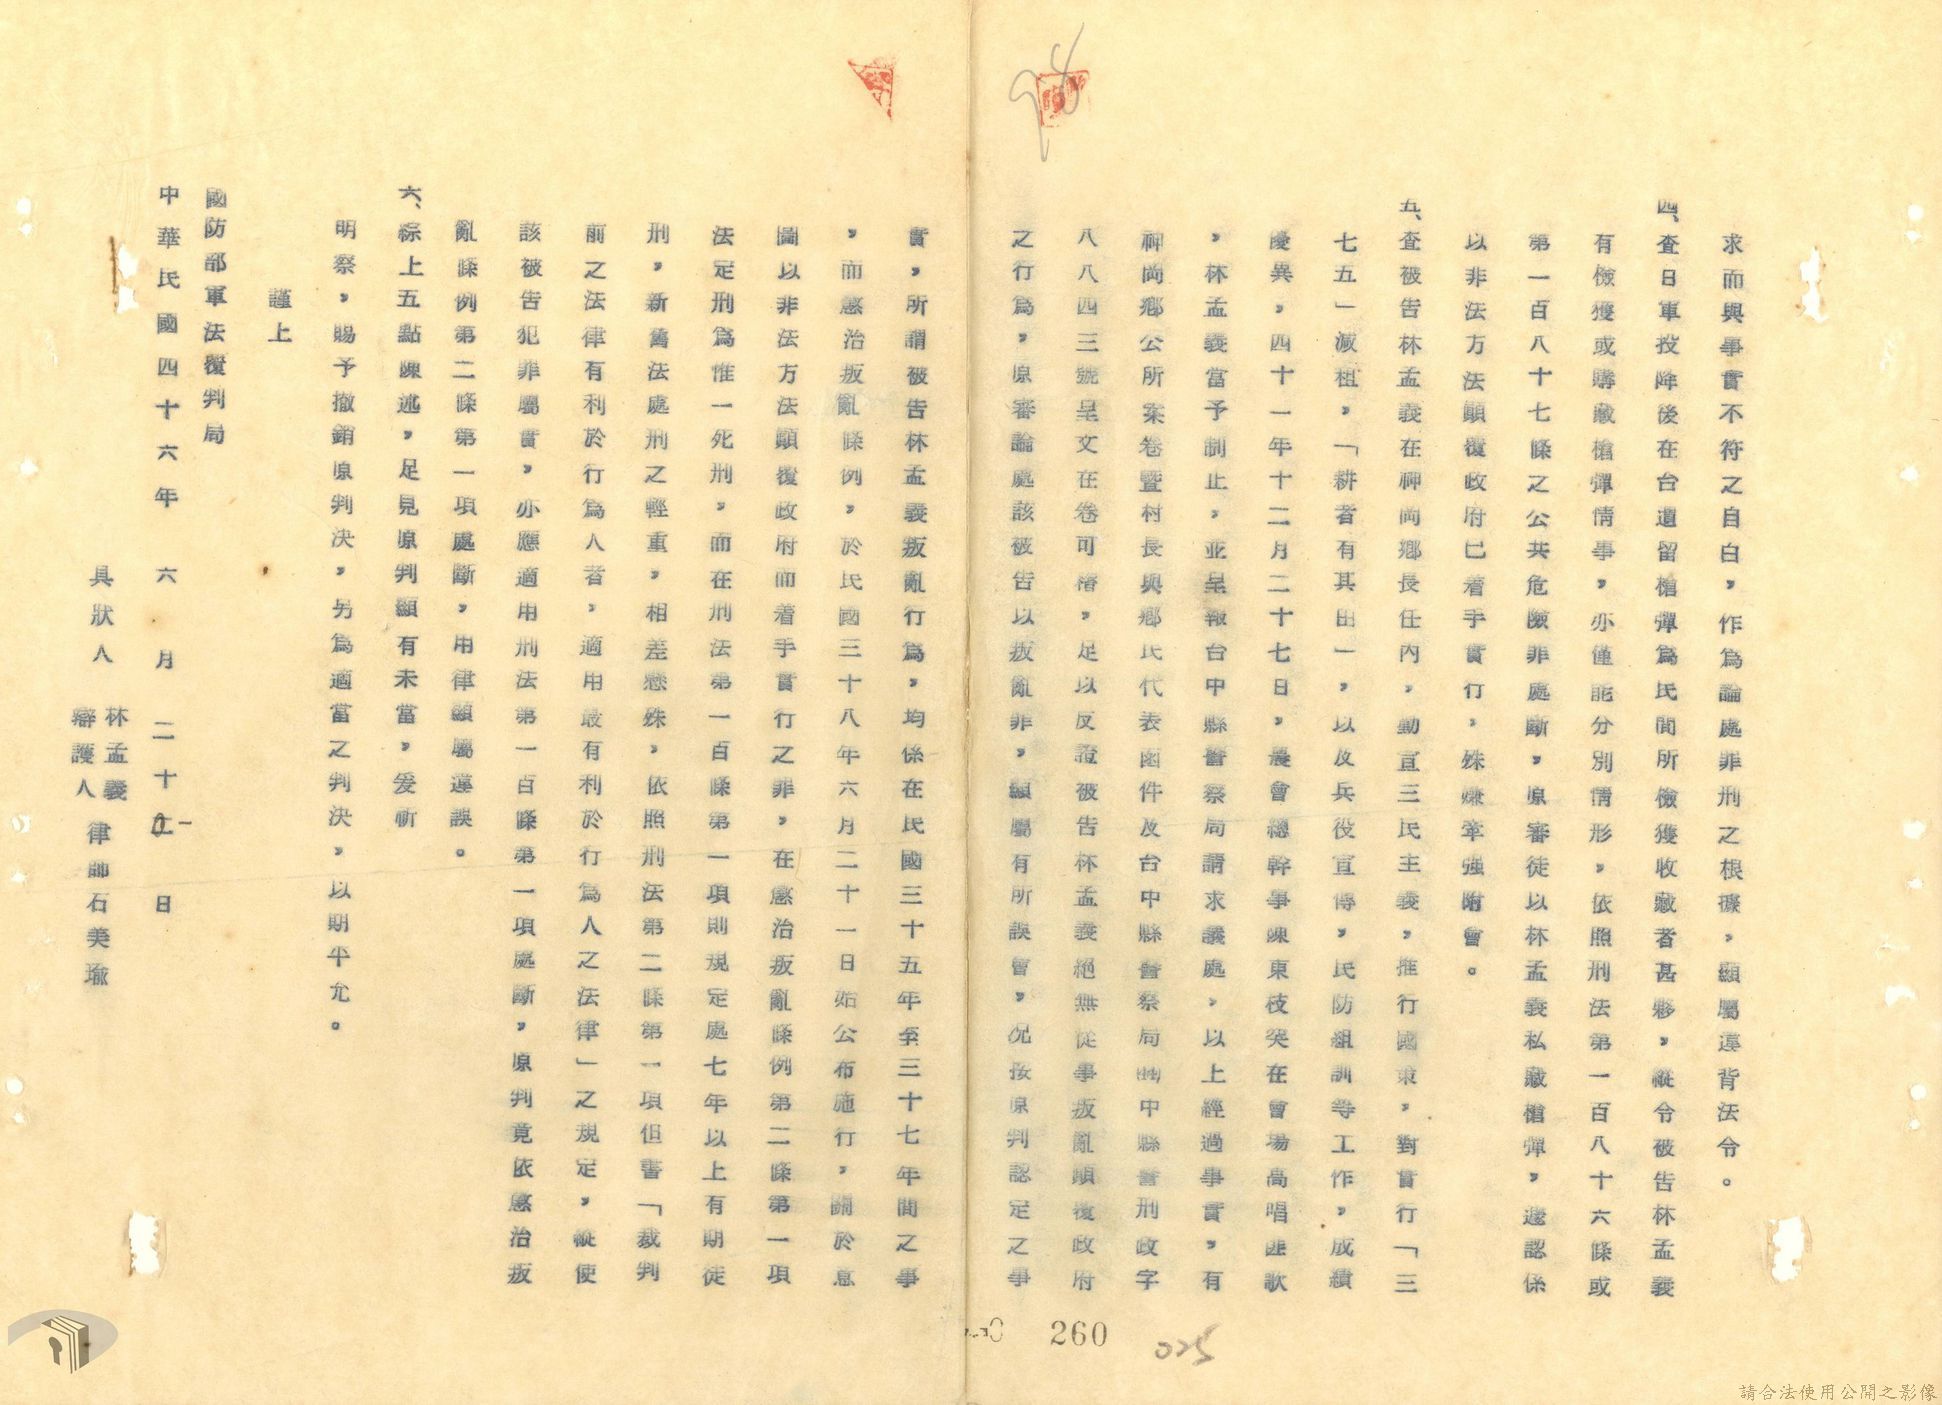 求而與事實不符之自白，作為論處罪刑之根據，顯屬違背法令。
四、查日軍投降後在台遺留槍彈為民間所檢獲收藏者甚夥，縱令被告林孟義
有檢獲或購藏槍彈情事，亦僅能分別情形，依照刑法第一百八十六條或
第一百八十七條之公共危險罪處斷，原審徒以林孟義私藏槍彈，遽認係
以非法方法顛覆政府已着手實行，殊嫌牽強附會。
五、查被告林孟義在神岡鄉長任內，勤宣三民主義，推行國策，對實行「三
七五」減租，「耕者有其田」，以及兵役宣傳，民防組訓等工作，成績
優異，四十一年十二月二十七日，農會總幹事陳東枝突在會場高唱匪歌
，林孟義當予制止，並呈報台中縣警察局請求議處，以上經過事實，有
神岡鄉公所案卷暨村長與鄉民代表函件及台中縣警察局 中縣警刑政字
八八四三號呈文在卷可稽，足以反證被告林孟義絕無從事叛亂顛覆政府
之行為，原審論處該被告以叛亂罪，顯屬有所誤會，況按原判認定之事
實，所謂被告林孟義叛亂行為，均係在民國三十五年至三十七年間之事
，而懲治叛亂條例，於民國三十八年六月二十一日始公布施行，關於意
圖以非法方法顛覆政府而着手實行之罪，在懲治叛亂條例第二條第一項
法定刑為惟一死刑，而在刑法第一百條第一項則規定處七年以上有期徒
刑，新舊法處刑之輕重，相差懸殊，依照刑法第二條第一項但書「裁判
前之法律有利於行為人者，適用最有利於行為人之法律」之規定，縱使
該被告犯罪屬實，亦應適用刑法第一百條第一項處斷，原判竟依懲治叛
亂條例第二條第一項處斷，用律顯屬違誤。
六、綜上五點陳述，足見原判顯有未當，爰祈
明察，賜予撤銷原判決，另為適當之判決，以期平允。
謹上
國防部軍法覆判局
中華民國四十六年 六 月 二十 一 日
具狀人 林孟義
辯護人 律師石美瑜
98
260
025
請合法使用公開之影像